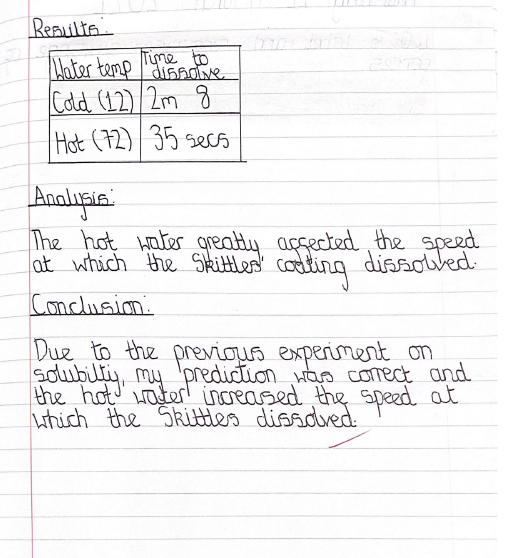 Results:
Water temp Time to dissolve
Cold (12) 2m 8
Hot (72) 35 secs
Analysis:
The hot water greatly affected the speed
at which the Skittles' coating dissolved.
Conclusion:
Due to the previous experiment on
solubilty, my prediction was correct and
the hot water increased the speed at
which the Skittles dissolved.